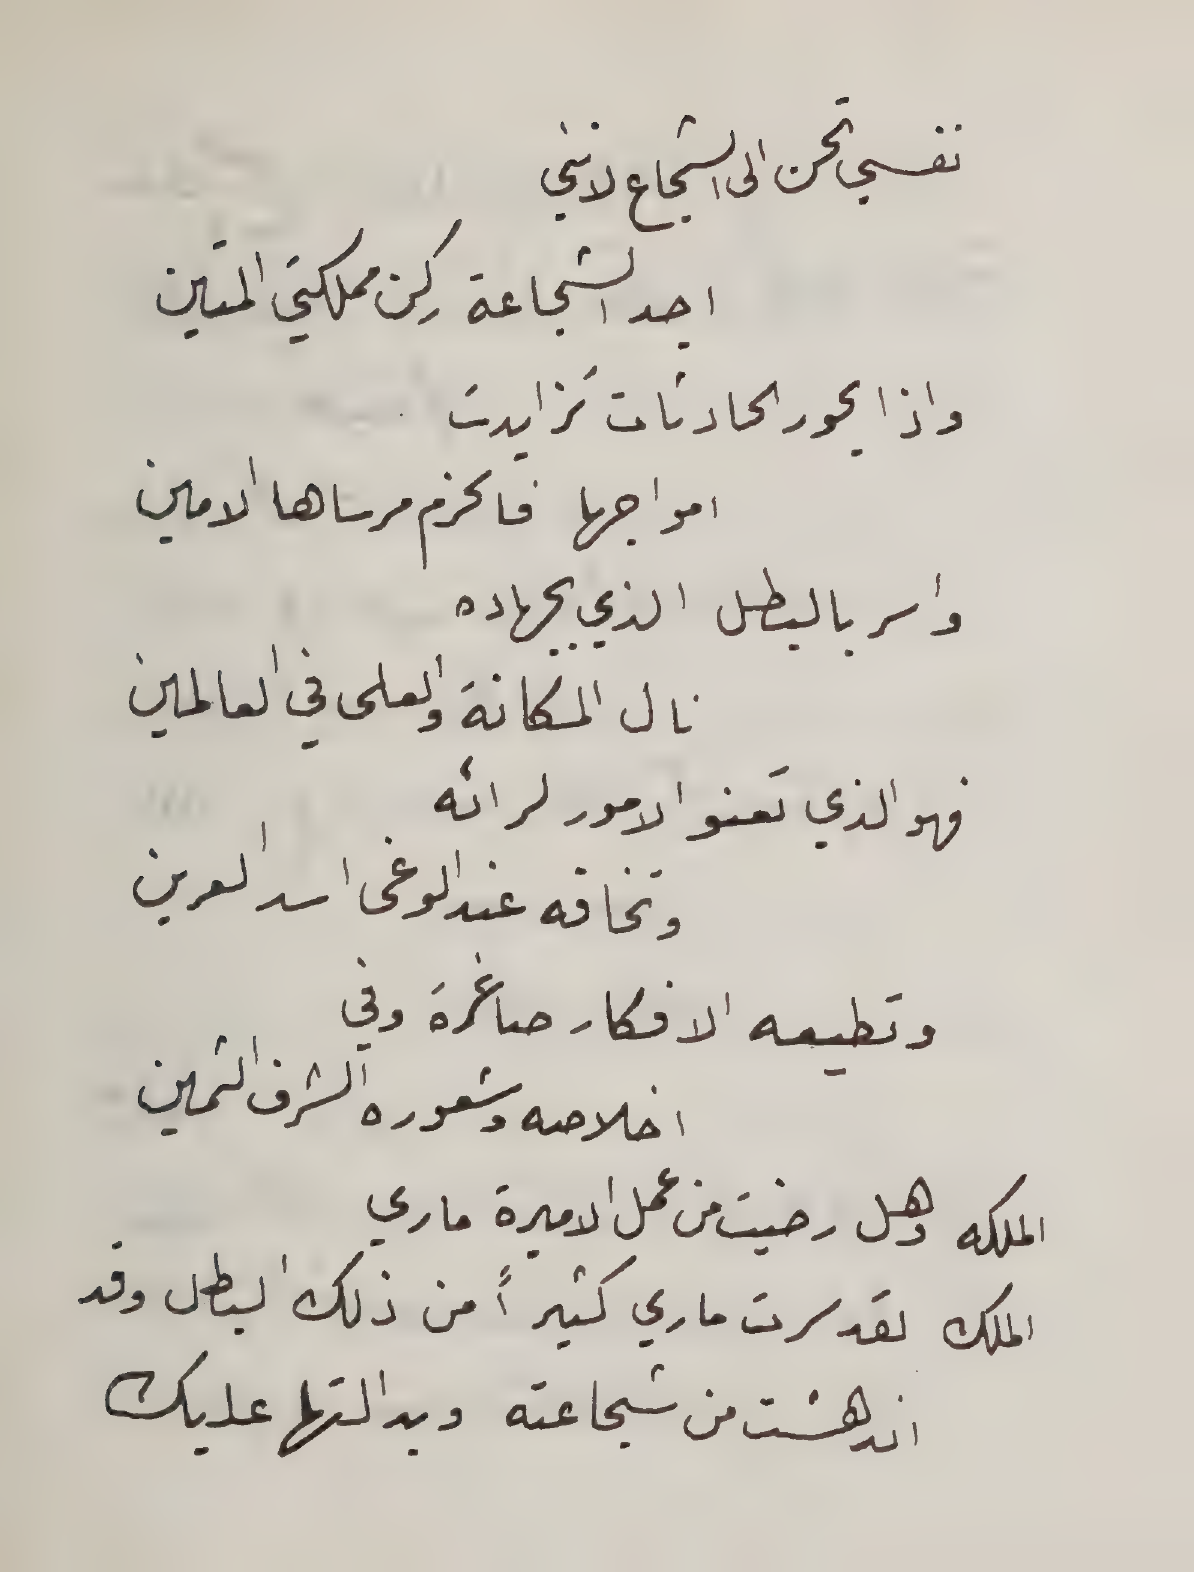 نفسي تحن الى الشجاع لانني
اجد الشجاعة ركن مملكتي المتين
واذا بحور الحادثات تزايدت
امواجها فالحزم مرساها الامين
واسر بالبطل الذي بجهاده
نال المكانة والعلى في العالمين
فهو الذي تعنو الامور لرائه
وتخافه عند الوغى اسد العرين
وتطيعه الافكار صاغرة وفي
اخلاصه وشعوره الشرف الثمين
الملكه وهل رضيت من عمل الاميرة ماري
الملك لقد سرت ماري كثيراً من ذلك البطل وقد
اندهشت من شجاعته وبدالتها عليك